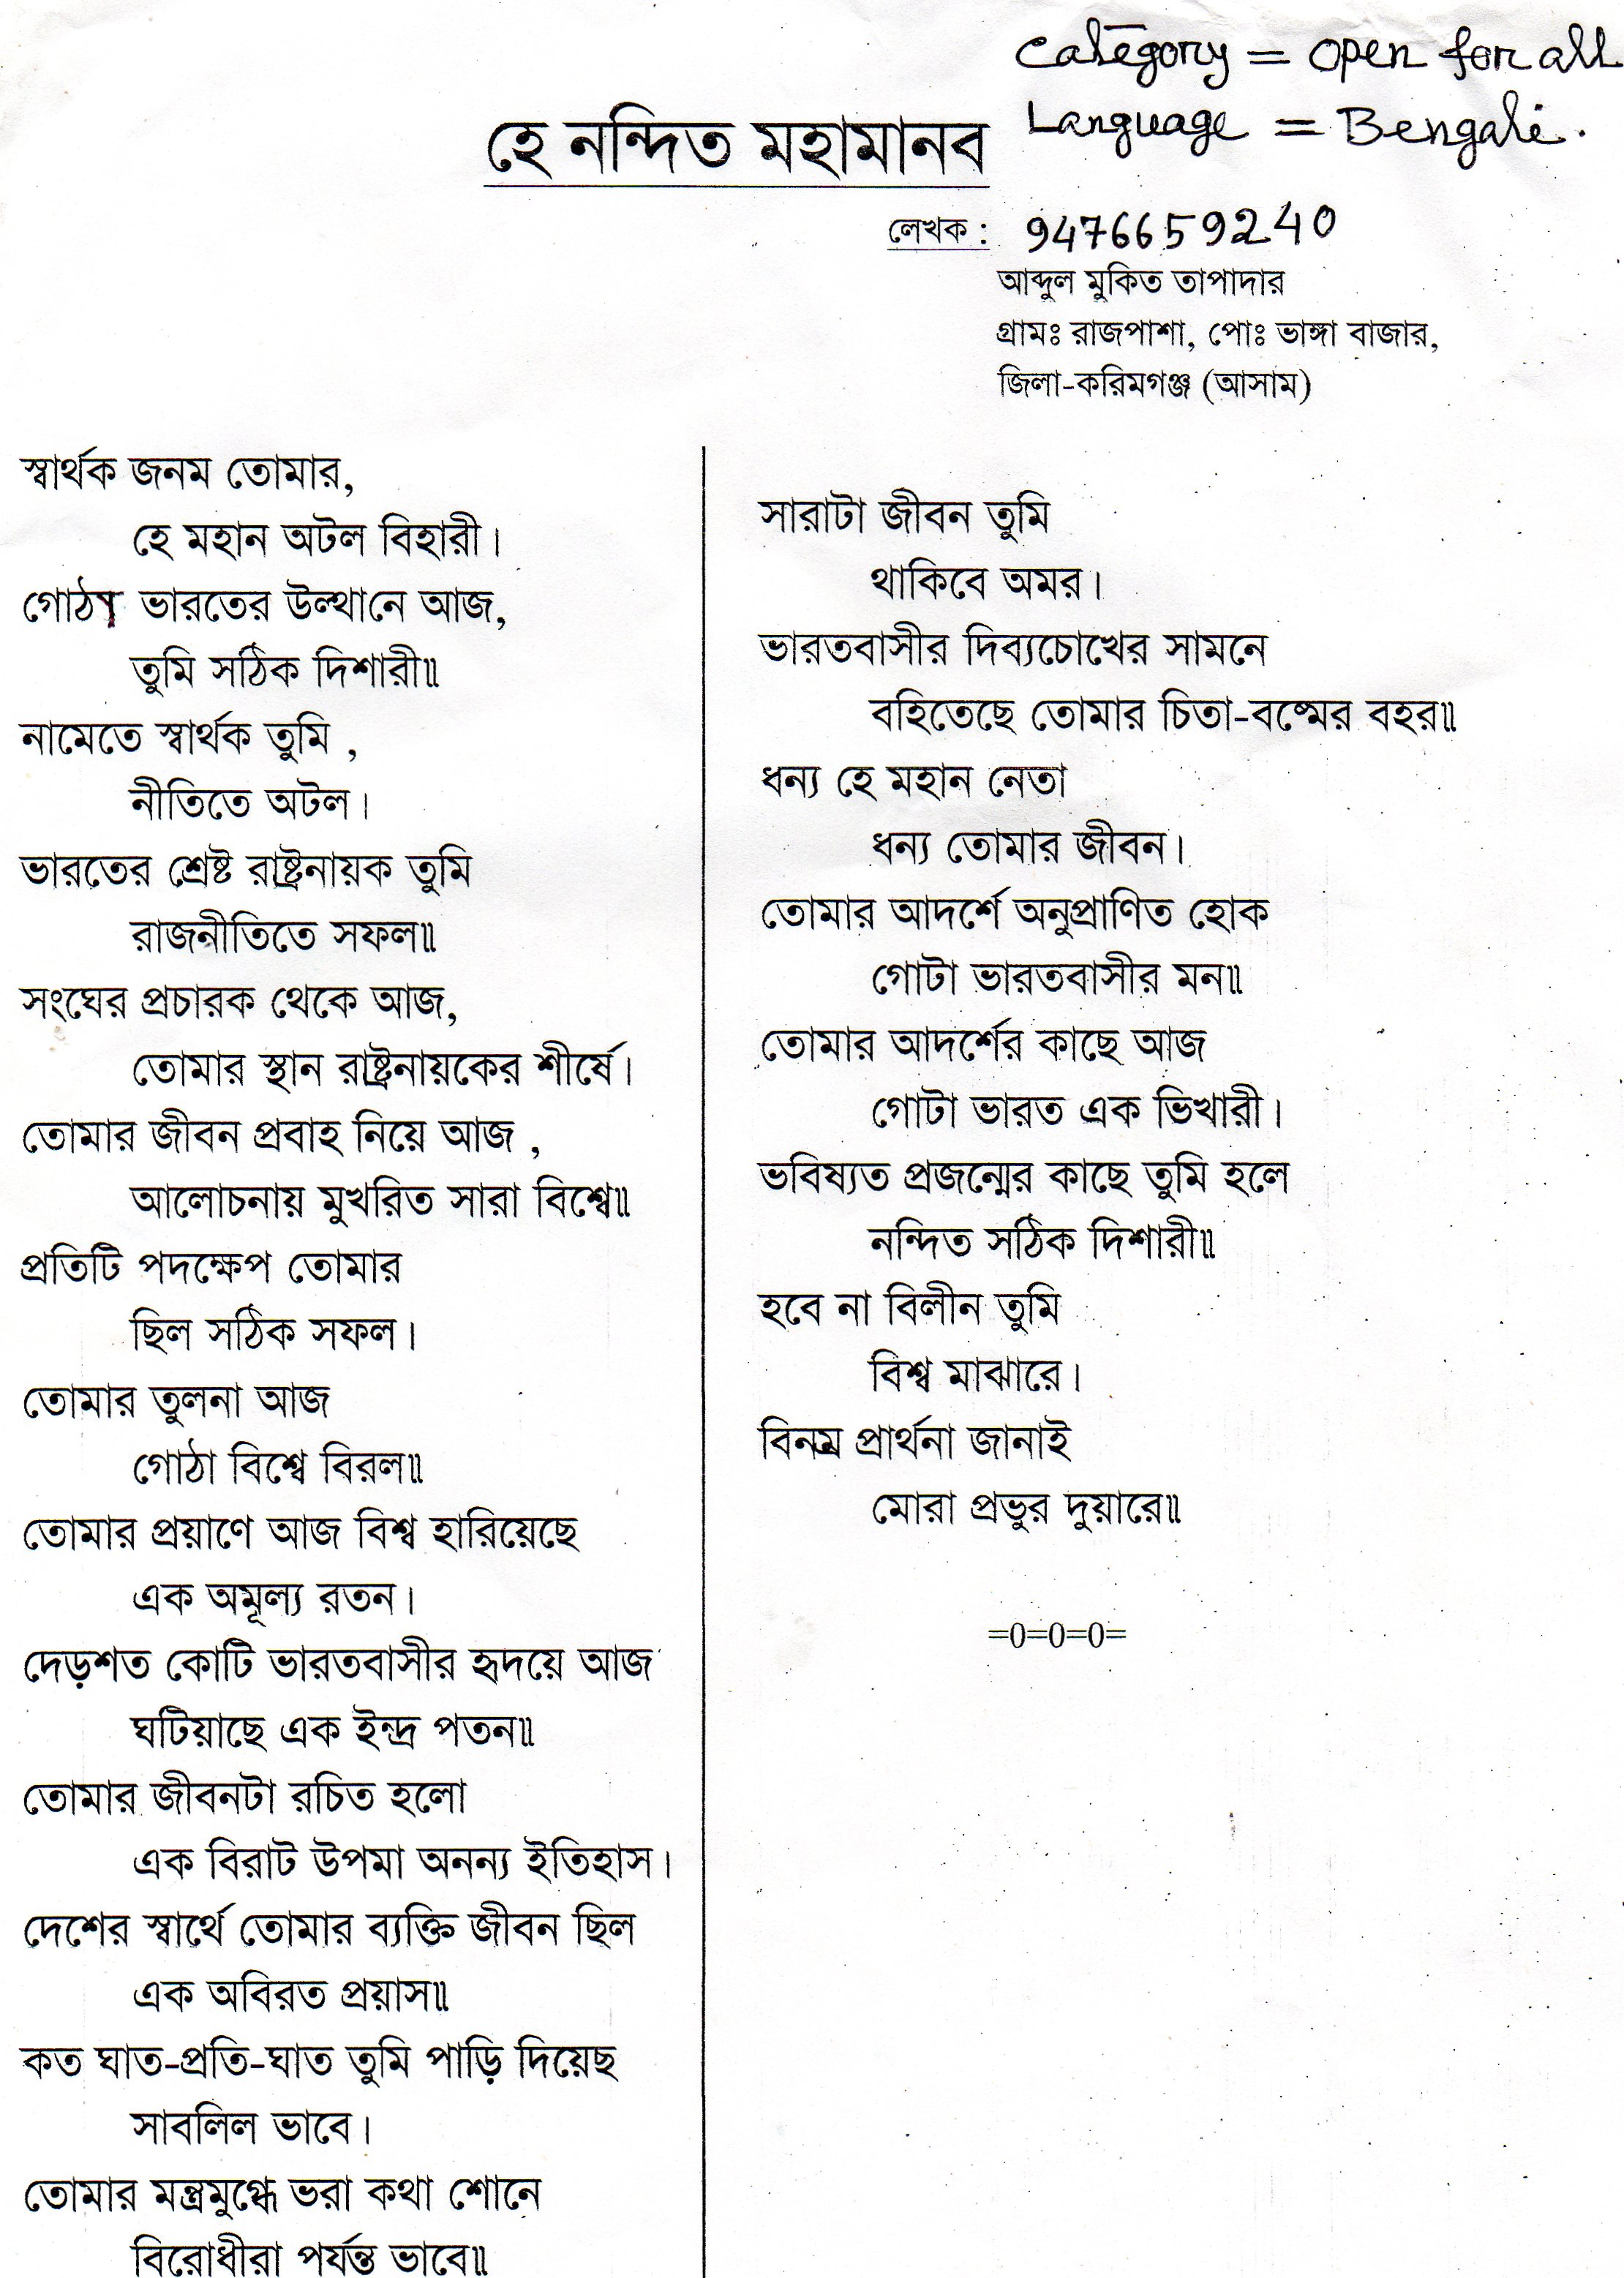 Category = Open for all
Language = Bengali.
হে নন্দিত মহামানব
লেখক : 9476659240
আব্দুল মুকিত তাপাদার
গ্রামঃ রাজপাশা, পোঃ ভাঙ্গা বাজার,
জিলা-করিমগঞ্জ (আসাম)
স্বার্থক জনম তোমার,
হে মহান অটল বিহারী।
গোঠা ভারতের উত্থানে আজ,
তুমি সঠিক দিশারী॥
নামেতে স্বার্থক তুমি ,
নীতিতে অটল।
ভারতের শ্রেষ্ট রাষ্ট্রনায়ক তুমি
রাজনীতিতে সফল॥
সংঘের প্রচারক থেকে আজ,
তোমার স্থান রাষ্ট্রনায়কের শীর্ষে।
তোমার জীবন প্রবাহ নিয়ে আজ ,
আলোচনায় মুখরিত সারা বিশ্বে॥
প্রতিটি পদক্ষেপ তোমার
ছিল সঠিক সফল।
তোমার তুলনা আজ
গোঠা বিশ্বে বিরল॥
তোমার প্রয়াণে আজ বিশ্ব হারিয়েছে
এক অমূল্য রতন।
দেড়শত কোটি ভারতবাসীর হৃদয়ে আজ
ঘটিয়াছে এক ইন্দ্র পতন॥
তোমার জীবনটা রচিত হলো
এক বিরাট উপমা অনন্য ইতিহাস।
দেশের স্বার্থে তোমার ব্যক্তি জীবন ছিল
এক অবিরত প্রয়াস॥
কত ঘাত-প্রতি-ঘাত তুমি পাড়ি দিয়েছ
সাবলিল ভাবে।
তোমার মন্ত্রমুগ্ধে ভরা কথা শোনে
বিরোধীরা পর্যন্ত ভাবে॥
সারাটা জীবন তুমি
থাকিবে অমর।
ভারতবাসীর দিব্যচোখের সামনে
বহিতেছে তোমার চিতা-বষ্মের বহর॥
ধন্য হে মহান নেতা
ধন্য তোমার জীবন।
তোমার আদর্শে অনুপ্রাণিত হোক
গোটা ভারতবাসীর মন॥
তোমার আদর্শের কাছে আজ
গোটা ভারত এক ভিখারী।
ভবিষ্যত প্রজন্মের কাছে তুমি হলে
নন্দিত সঠিক দিশারী॥
হবে না বিলীন তুমি
বিশ্ব মাঝারে।
বিনম্র প্রার্থনা জানাই
মোরা প্রভুর দুয়ারে॥
=0=0=0=